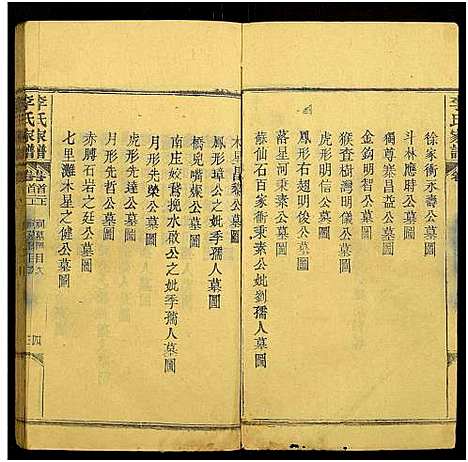 徐家衝永壽公墓圖
斗林應時公墓圖
獨尊寨昌益公墓圖
金鈎明智公墓圖
猴查樹灣明儀公墓圖
虎形明信公墓圖
鳳形右翅明俊公墓圖
落星河秉素公墓圖
蘇仙石百家衝秉素公妣劉孺人墓圖
木星昌秦公墓圖
鳳形璋公之妣李孺人墓圖
橋兒嘴燦公墓圖
南庄姣鵞挽水啟公之妣季孺人墓圖
月形先榮公墓圖
虎形先登公墓圖
月形先哲公墓圖
赤膊石岩之廷公墓圖
七里灘木星之健公墓圖
李氏家譜
卷首
四